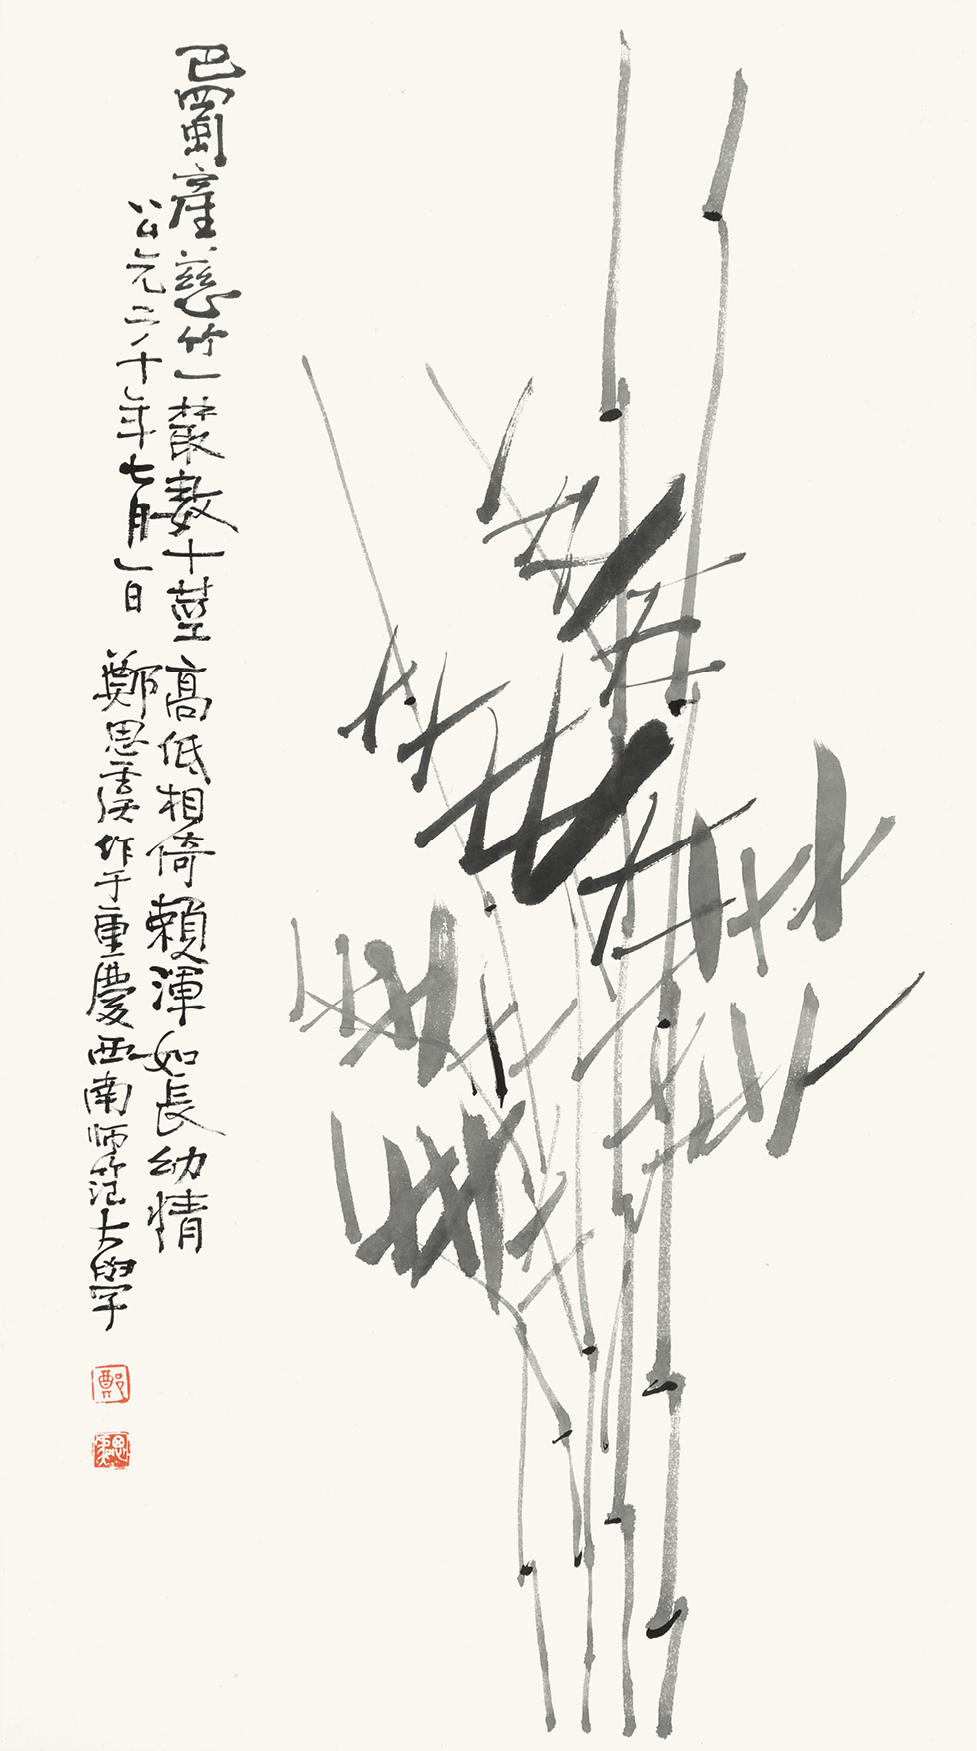 巴蜀產慈竹一叢數十莖高低相倚賴渾如長幼情
公元二十年七月一日 鄭思虞作于重慶西南师范大學
鄭
思虞